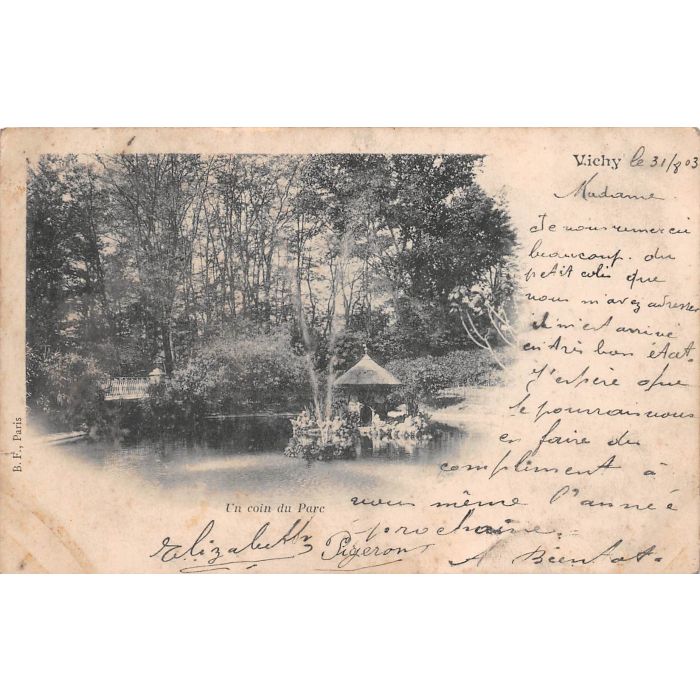 Vichy le 31/8 03
Madame
Je vous remercu
beaucoup. du
petit coli que
vous m'avez adresser
il m'est arrivé
en très bon état.
J'espère que
le pourrais vous
en faire du
compliment à
vous même l'anneé
prochaine.
A Bientot.
Elizabeth Pigeron
Un coin du Parc
B. F., Paris